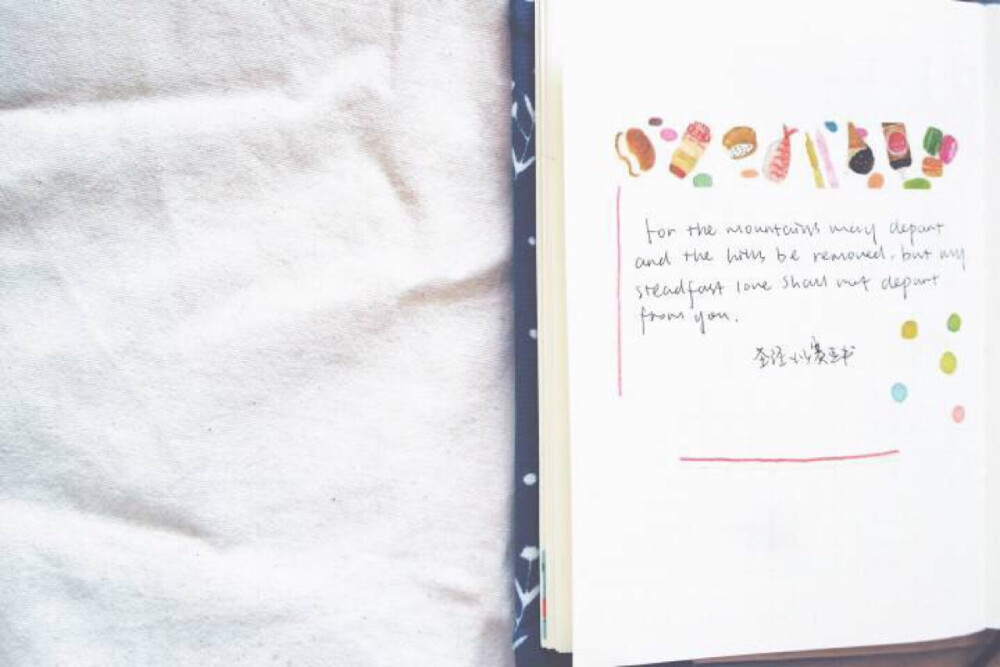 for the mountains may depart
and the hills be removed, but my
steadfast love shall not depart
from you.
圣经·以赛亚书